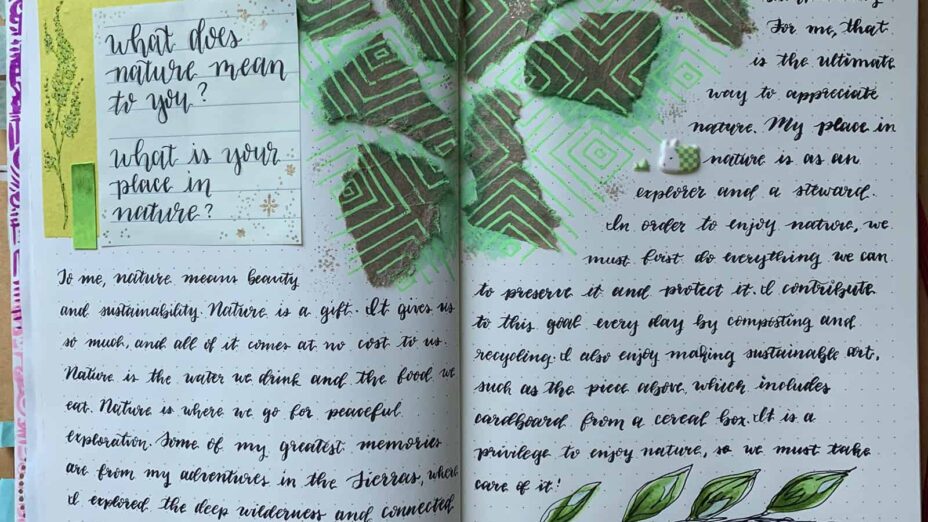 what does
nature mean
to you?
what is your
place in
nature?
To me, nature means beauty
and sustainability. Nature is a gift. It gives us
so much, and all of it comes at no cost to us.
Nature is the water we drink and the food we
eat. Nature is where we go for peaceful
exploration. Some of my greatest memories
are from my adventures in the Sierras, where
I explored the deep wilderness and connected
For me, that
is the ultimate
way to appreciate
nature. My place in
nature is as an
explorer and a steward.
In order to enjoy nature, we
must first do everything we can
to preserve it and protect it. I contribute
to this goal every day by composting and
recycling. I also enjoy making sustainable art,
such as the piece above, which includes
cardboard from a cereal box. It is a
privilege to enjoy nature, so we must take
care of it!